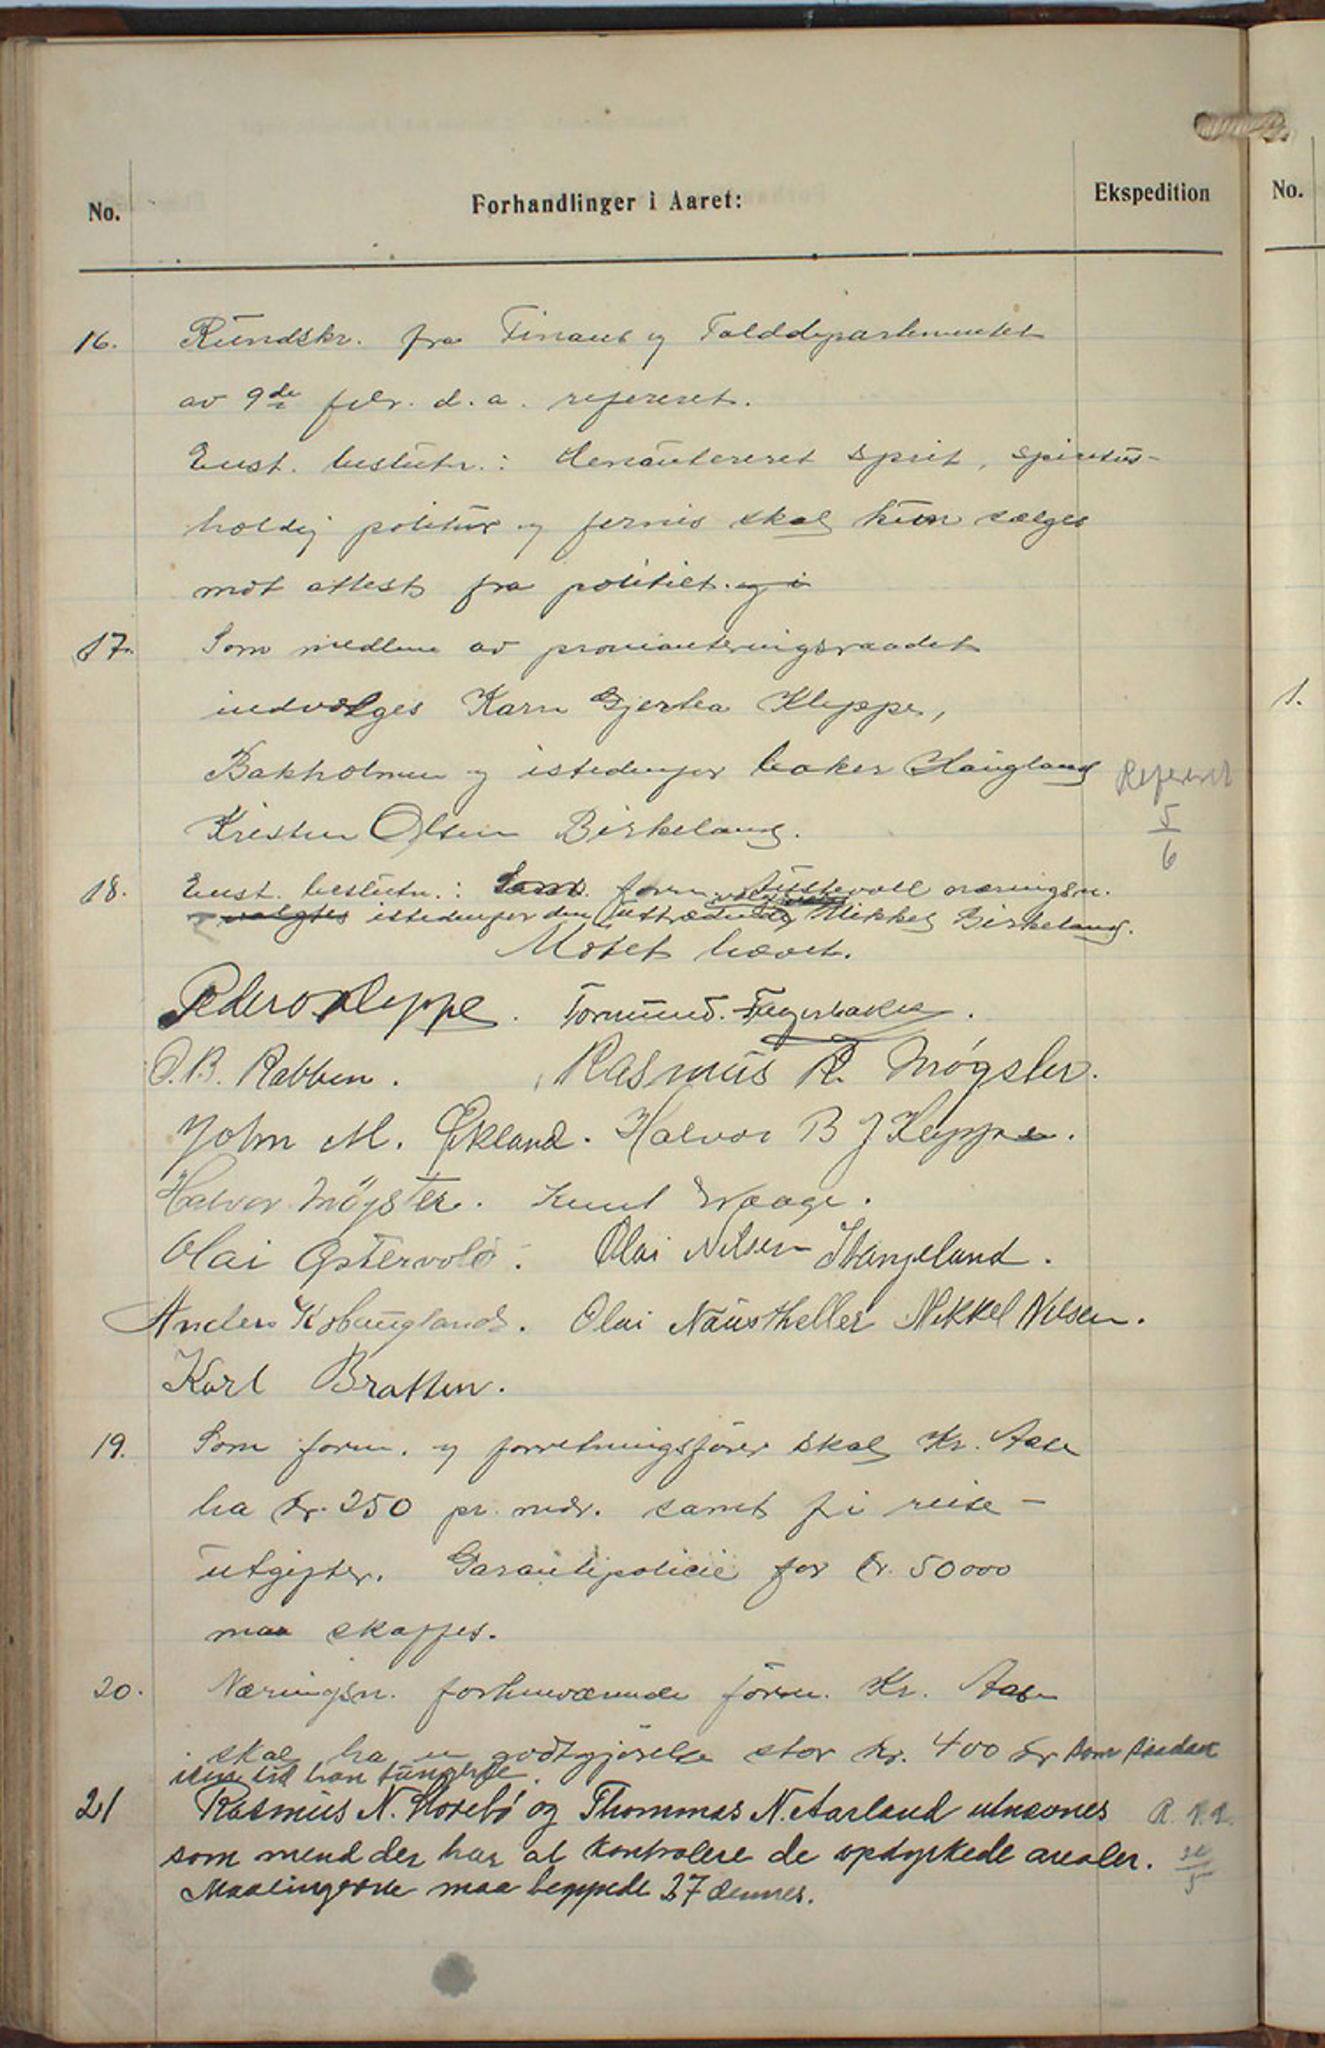 No.
Forhandlinger i Aaret:
Ekspedition
No.
16. Rundskr. fra Finans og Tolddepartementet
av 9de febr. d.a. refereret.
Enst. beslutn.: denatureret sprit, spiritus-
holdig politur og fernis skal kun sælges
mot attest fra politiet. og i
17. Som medlem av provianteringsraadet
indvælges Karn Gjertea Kleppe,
Bakholmen og istedenfor baker Haugland
Kristen Olsen Birkeland.
Refereret
5
6
18. Enst. beslutn.: Som form. Austevoll næringsn.
valgtes istedenfor den uttrædende Mikkel Birkeland.
Møtet hævet.
Peder O. Kleppe. Tormund. Fagerbakke.
O. B. Rabben. Rasmus R. Møgster.
John M. Økland. Halvor B J Kleppe.
Halvor Møgster. Knut Waage.
Olai Østervold. Olai Nilsen Stangeland.
Anders K Haugland. Olai Naustheller Mikkel Nilsen.
Karl Bratten.
19. Som form. og forretningsfører skal Kr. Aase
ha kr. 250 pr. mdr. samt fri reise-
utgifter. Garantipolicie for kr. 50000
maa skaffes.
20. Næringsn. forhenværende form. Kr. Aase
skal ha en godtgjørelse stor kr. 400 for som saadan
den tid han fungerte.
21 Rasmus N. Storebø og Thommas N. Aarland utnevnes
som mend der har at kontrolere de opdyrkede arealer.
Maalingerne maa beg 27 dennes.
1.